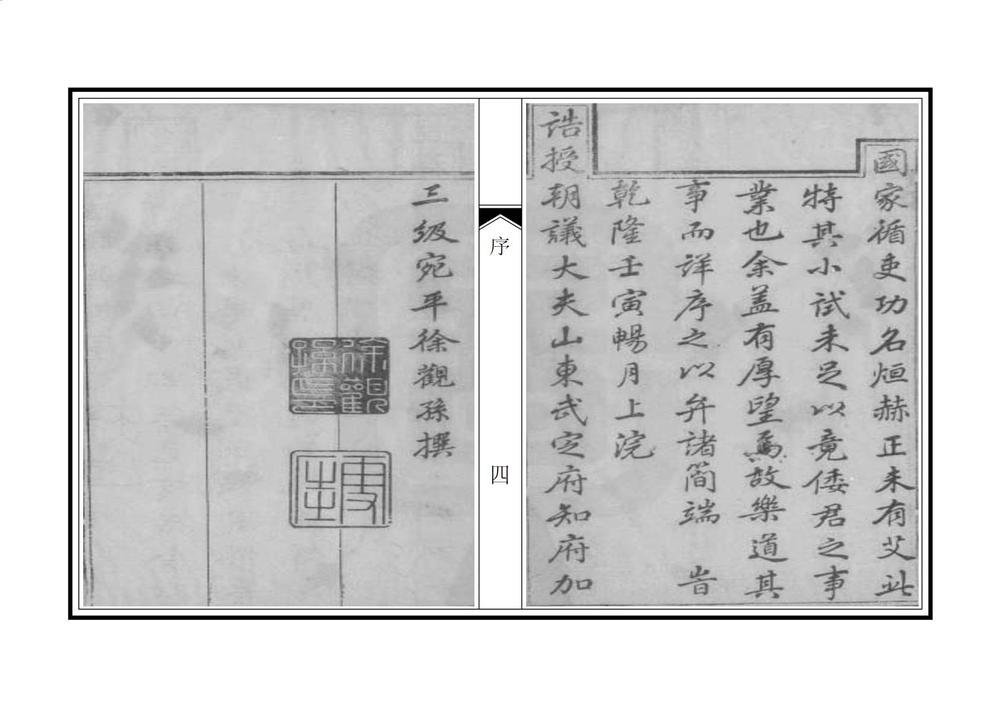 國家循吏功名烜赫正未有艾此
特其小試未足以竟倭君之事
業也余盖有厚望焉故樂道其
事而詳序之以弁諸簡端 旹
乾隆壬寅暢月上浣
誥授朝議大夫山東武定府知府加
序
四
三級宛平徐觀孫撰
徐觀
孫